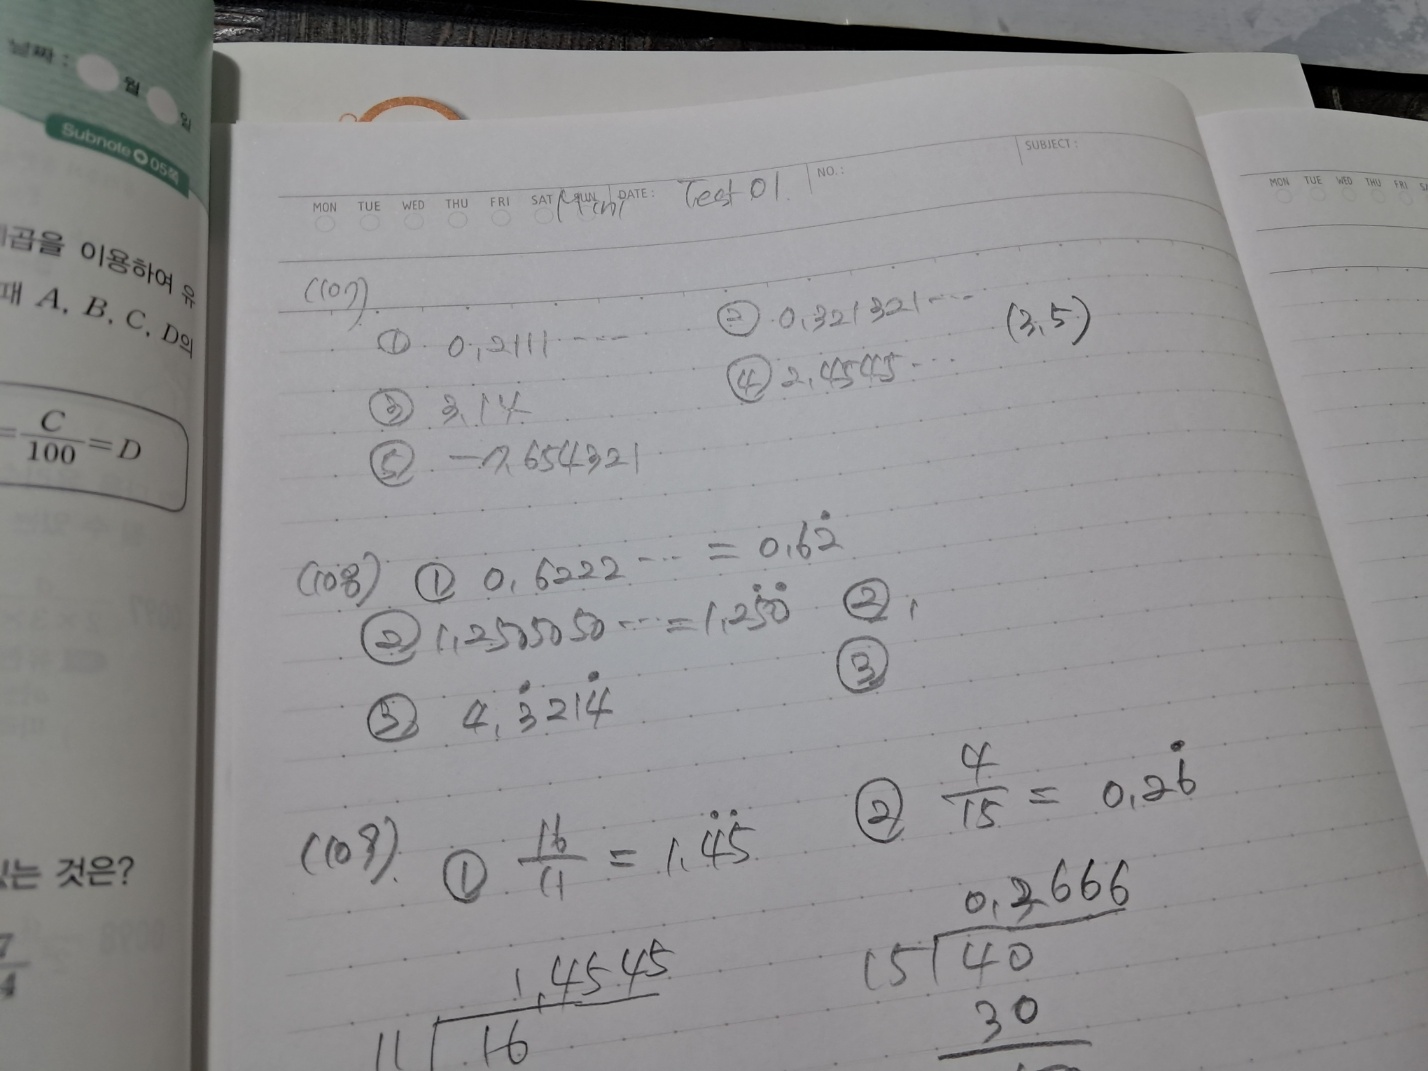 날짜 : 월 일
Subnote 05쪽
곱을 이용하여 유
때 A, B, C, D의
= C/100 = D
있는 것은?
7/4
MON TUE WED THU FRI SAT SUN DATE : Test 01 NO. : SUBJECT :
MON TUE WED THU FRI
(107)
① 0,2111 ---- ② 0,321321 --- (3,5)
③ 3,14 ④ 2,4545 ---
⑤ -7,654321
(108) ① 0,6222 --- = 0,62̇
② 1,2505050 --- = 1,25̇0̇ ② ,
③ 4,3̇214̇ ③
(109). ① 16/11 = 1,4̇5̇ ② 4/15 = 0,26̇
1,4545 0,2666
11 16 15 40
30